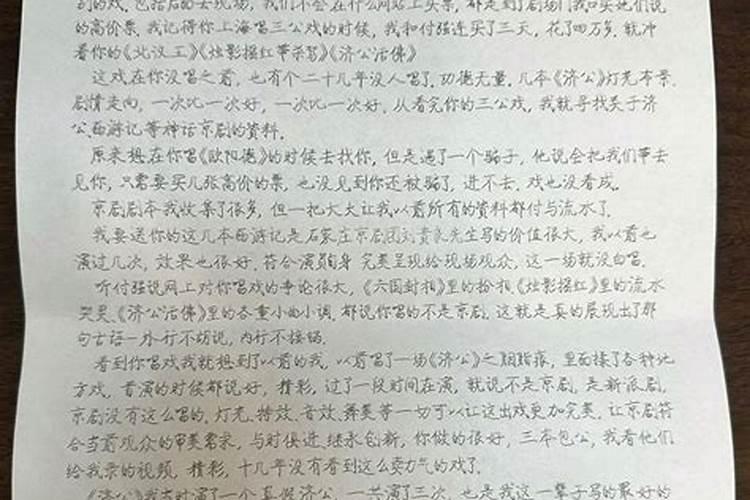 别的戏，包括后面去现场，我们不会在什么网站上买票，都是到了剧场门我口买她们说
的高价票，我记得你上海唱三公戏的时候，我和付强连买了三天，花了四万多，就冲
看你的《北汉王》《烛影摇红带杀驾》《济公活佛》
这戏在你没唱之前，也有个二十几年没人唱了，功德无量，几本《济公》灯光布景，
剧情走向，一次比一次好，一次比一次好，从看完你的三公戏，我就寻找关于济
公西游记等神话京剧的资料。
原来想在你唱《欧阳德》的时候去找你，但是遇了一个骗子，他说会把我们带去
见你，只需要买几张高价的票，也没见到你还被骗了，进不去，戏也没看成。
京剧剧本我收集了很多，但一把大火让我以前所有的资料都付与流水了。
我要送你的这几本西游记是石家庄京剧团刘贵先生写的价值很大，我以前也
演过几次，效果也很好，符合演员自身 完美呈现给现场观众，这一场就没白唱。
听付强说网上对你唱戏的争论很大，《六国封相》里的扮相《烛影摇红》里的流水
哭灵，《济公活佛》里的各重小曲小调，都说你唱的不是京剧，这就是真的展现出了那
句古语一外行不胡说，内行不接锅。
看到你唱戏我就想到了以前的我，以前唱了一场《济公》之胭脂痕，里面揉了各种地
方戏，首演的时候都说好，精彩，过了一段时间在演，就说不是京剧，是新派剧，
京剧没有这么唱的，灯光，特效，音效，舞美等一切可以让这出戏更加完美，让京剧符
合当前观众的审美需求，与时俱进，继承创新，你做的很好，三本包公，我看他们
给我录的视频，精彩，十几年没有看到这么卖力气的戏了。
《济公》我古时演了一个真假济公，一共演了三次，也是我这一辈子写的最好的